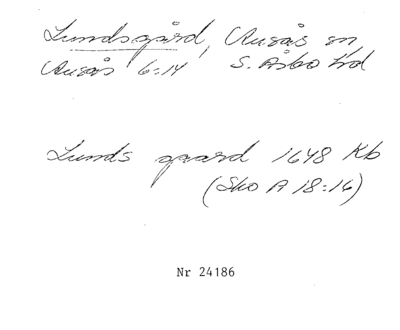 Lundsgård, Ausås sn
Ausås 6:14 S. Åsbo hd
Lunds gaard 1648 Kb
(Sko A 18:16)
Nr 24186